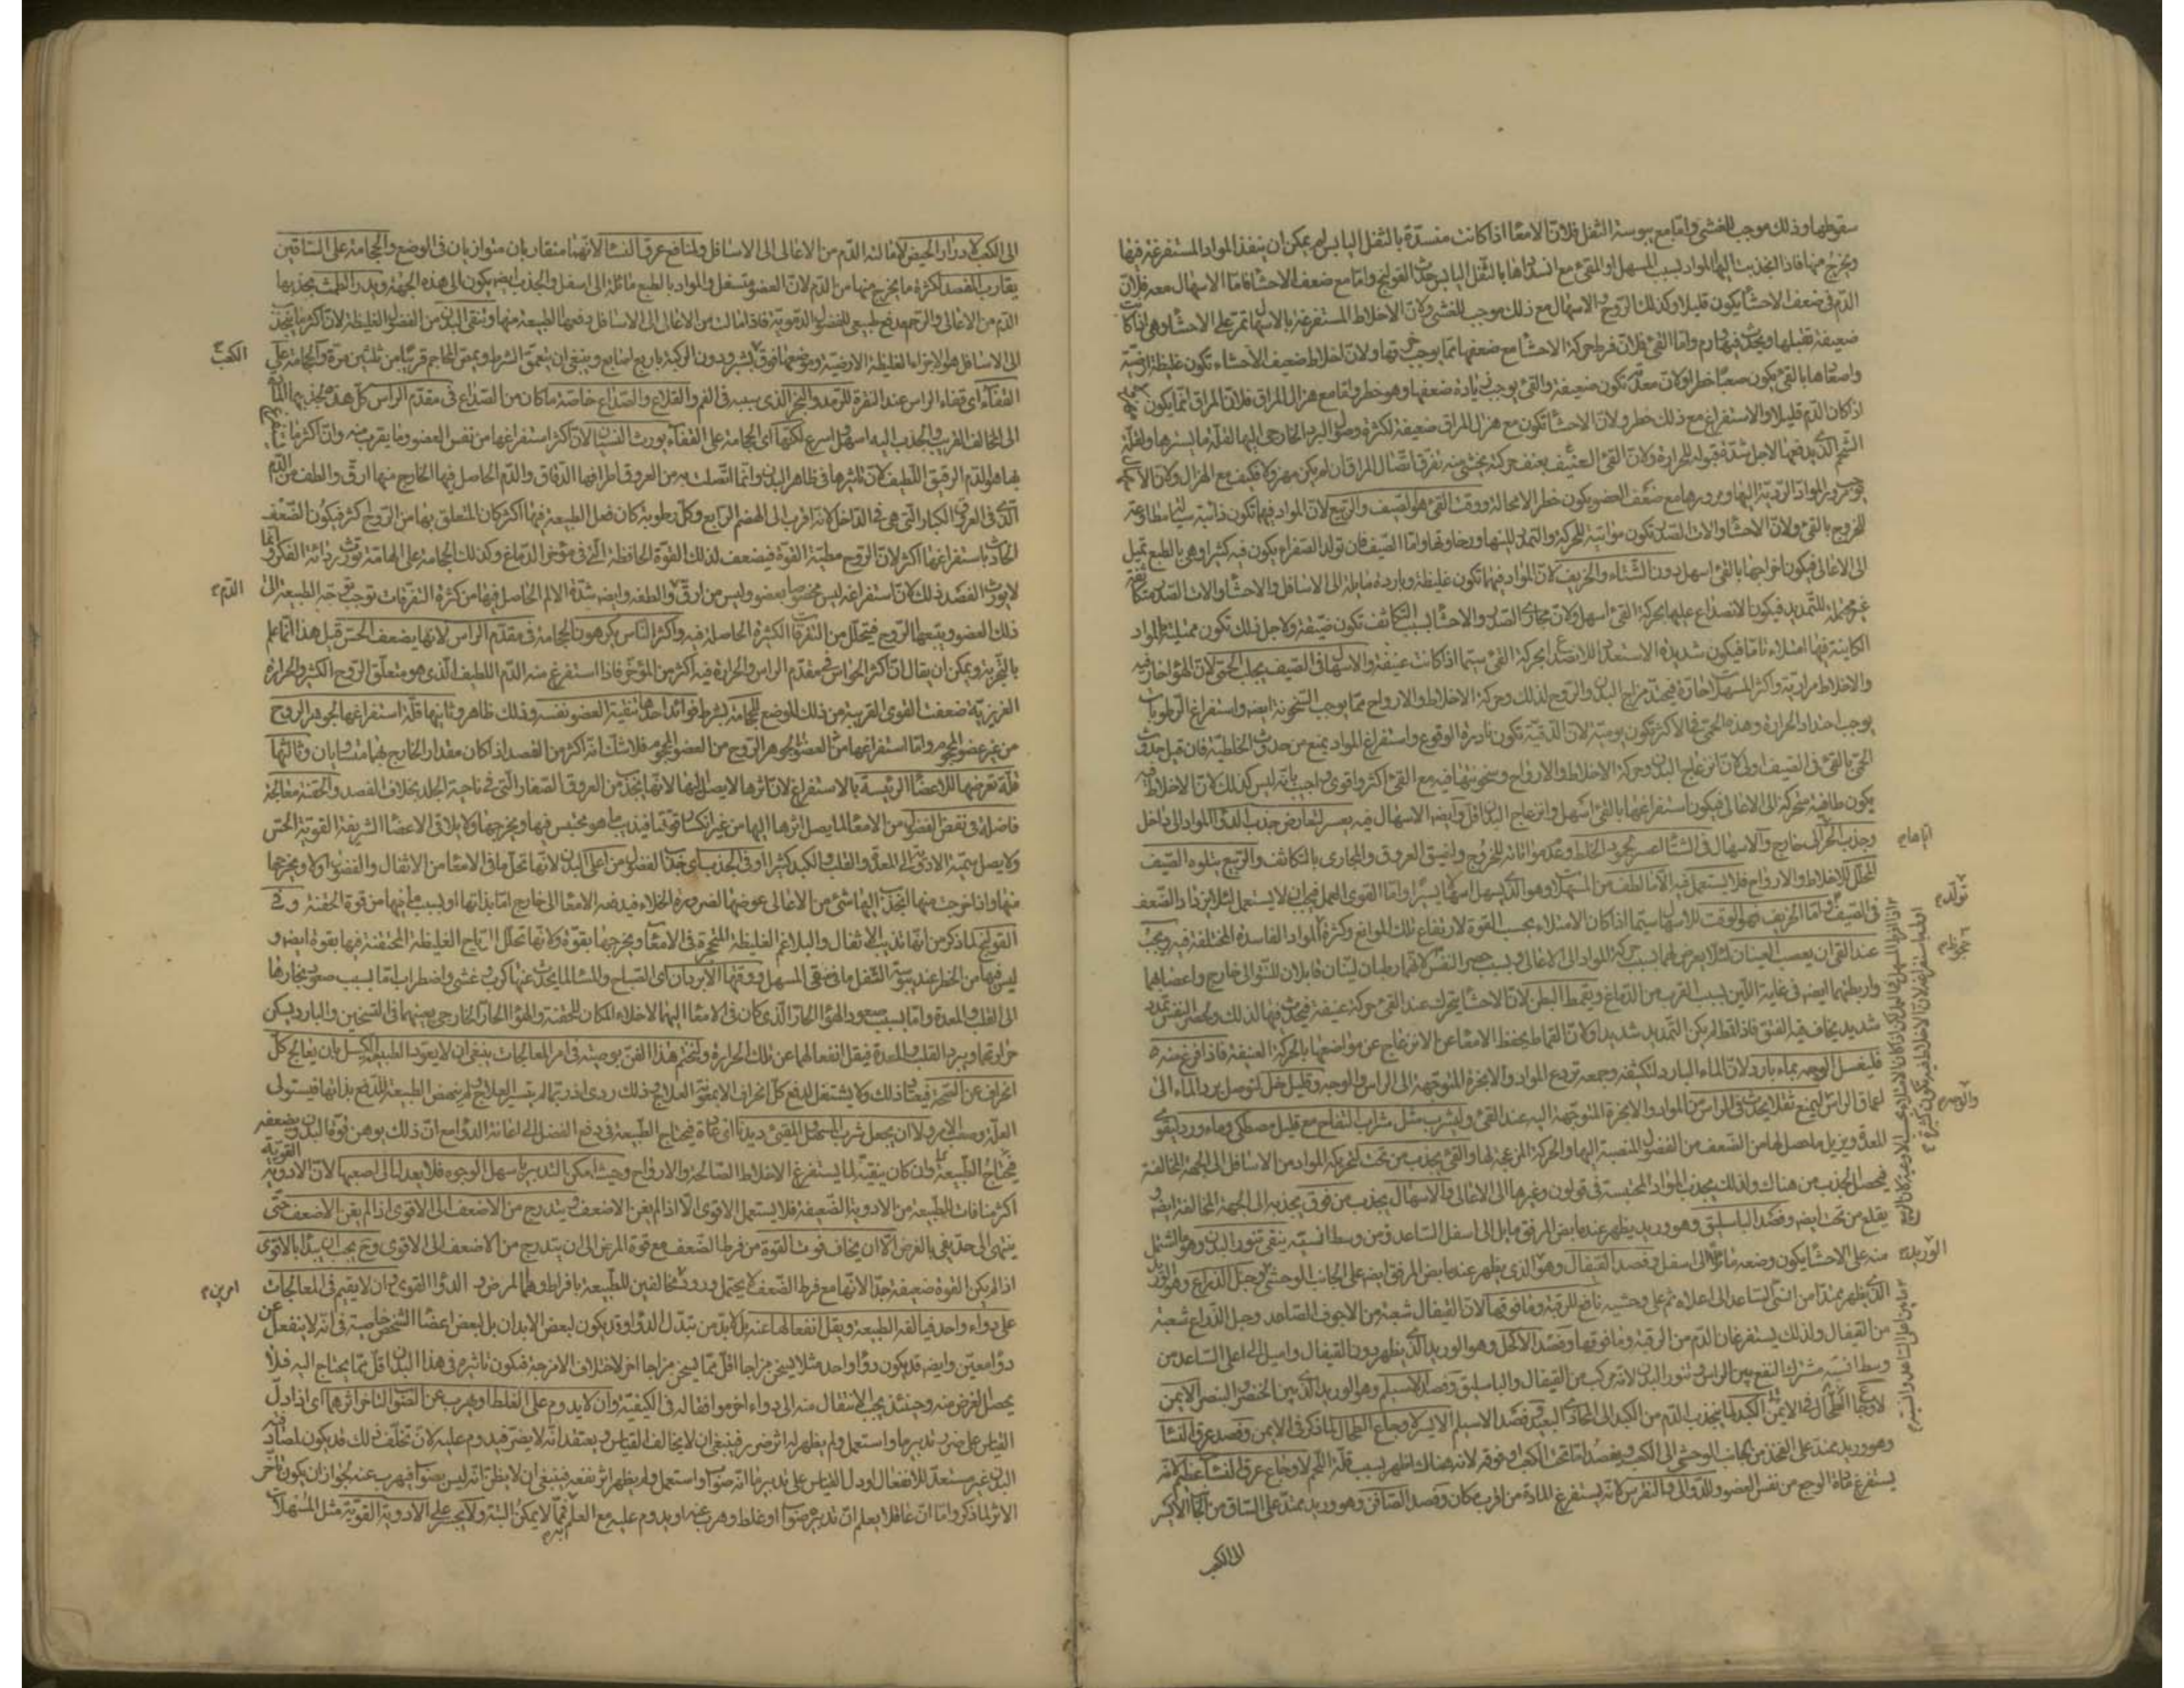 سقوطها وذلك موجب للغشى واما مع يبوسة الثفل فلان الامعا اذا كانت منسدة بالثفل اليابس لم يمكن ان ينفذ المواد المستفرغة فيها
ويخرج منها فاذا انجذبت اليها المواد بسبب المسهل او القئ مع انسدادها بالثفل اليابس حدث القولنج واما مع ضعف الاحشا فاما الاسهال معه فلان
الدم فى ضعف الاحشا يكون قليلا وكذلك الروح والاسهال مع ذلك موجب للغشى ولان الاخلاط المستفرغة بالاسهال تمر على الاحشا وهى لما كانت
ضعيفة تقبلها ويحدث فيها ورم واما القئ فلان فرط حركة الاحشا مع ضعفها مما يوجب خرقها ولان اخلاط ضعيف الاحشاء تكون غليظة ارضية
واصعادها بالقئ يكون صعبا خطرا ولان معدته تكون ضعيفة والقئ يوجب زيادة ضعفها وهو خطر واما مع هزال المراق فلان المراق انما يكون
اذ كان الدم قليلا والاستفراغ مع ذلك خطر ولان الاحشا تكون مع هزال المراق ضعيفة لكثرة وصول البرد الخارجى اليها لقلة ما يسترها ولقلة
الشحم الذى يدفئها لاجل شدة قبوله للحرارة ولان القئ العنيف يعنف حركته يخشى منه تفرق اتصال المراق ان لم يكن مهزولا فكيف مع الهزال ولان
المواد الردية اليها ومرورها مع ضعف العضو يكون خطر الامحالة ووقت القئ هو الصيف والربيع لان المواد فيهما تكون ذائبة سيالة مطاوعة
للخروج بالقئ ولان الاحشا والات الصدر تكون مواتية للحركة والتمدد للينها ورخاوتها واما الصيف فان تولد الصفراء يكون فيه كثيرا وهى بالطبع تميل
الى الاعالى فيكون اخراجها بالقئ اسهل دون الشتاء والخريف لان المواد فيهما تكون غليظة وباردة مايلة الى الاسافل والاحشا والات الصدر متكاثفة
غير محتملة للتمديد فيكون الانصداع عليها بحركة القئ اسهل ولان مجارى الصدر والاحشا بسبب التكاثف تكون ضيقة ولاجل ذلك تكون ممتلية بالمواد
الكاينة فيها امتلاء تاما فيكون شديدة الاستعداد للانصداع بحركة القئ سيما اذا كانت عنيفة والاسهال فى الصيف يجلب الحمى لان الهواء حار فيه
والاخلاط مرارية واكثر المسهلات حارة فيحتد مزاج البدن والروح لذلك وحركة الاخلاط والارواح مما يوجب السخونة ايضا واستفراغ الرطوبات
يوجب احتداد الحرارة وهذه الحمى فى الاكثر تكون يومية لان الدقية تكون نادرة الوقوع واستفراغ المواد يمنع من حدوث الخلطية فان قيل حدوث
الحمى بالقئ فى الصيف اولى لان انزعاج البدن وحركة الاخلاط والارواح وسخونتها فيه مع القئ اكثر واقوى اجيب بانه ليس كذلك لان الاخلاط فيه
يكون طافية متحركة الى الاعالى فيكون استفراغها بالقئ اسهل وانزعاج البدن اقل وايضا الاسهال فيه يعسر لتعارض جذب الدواء المواد الى داخل
وجذب الحر الى خارج والاسهال فى الشتا عسر لجمود الخلط وعدم مواتاته للخروج ولضيق العروق والمجارى بالتكاثف والربيع يتلوه الصيف
المحلل للاخلاط والارواح فلا يستعمل فيه الا ما لطف من المسهلات وهو الذى يسهل اسهالا يسيرا واما القوى العمل فيجب ان لا يستعمل لئلا يزداد الضعف
فى الصيف واما الخريف فهو الوقت للاسهال سيما اذا كان الامتلاء بحسب القوة لارتفاع تلك الموانع وكثرة المواد الفاسدة المختلفة فيه ويجب
عند القئ ان يعصب العينان لئلا يعرض لهما بسبب حركة المواد الى الاعالى وبسبب حصر النفس لانهما رطبان لينان قابلان للنتو الى خارج واعصابهما
واربطتهما ايضا فى غاية اللين بسبب القرب من الدماغ ويقمط البطن لان الاحشا يتحرك عند القئ حركة عنيفة فيحدث فيها لذلك ولحصر النفس تمدد
شديد يخاف فيه الفتق فاذا قمط لم يكن التمدد شديدا ولان القماط يحفظ الامعا عن الانزعاج عن مواضعها بالحركة العنيفة فاذا فرغ منه
فليغسل الوجه بماء بارد لان الماء البارد لتكثيفه وجمعه تردع المواد والابخرة المتوجهة الى الراس والوجه وقليل خل لتوصل برد الماء الى
اعماق الراس ليمنع ثقلا يحدث فى الراس من المواد والابخرة المتوجهة اليه عند القئ وليشرب مثل شراب التفاح مع قليل مصطكى وماء ورد ليقوى
المعدة ويزيل ما حصل لها من الضعف من الفضول المنصبة اليها والحركة المزعجة لها والقئ يجذب من تحت لتحريكه المواد من الاسافل الى الجهة المخالفة
فيحصل الجذب من هناك ولذلك يجذب المواد المحتبسة فى قولون وغيرها الى الاعالى والاسهال يجذب من فوق بجذبه الى الجهة المخالفة ايضا و
يقلع من تحت ايضا وفصد الباسليق وهو وريد يظهر عند مابض المرفق مايل الى اسفل الساعد ومن وسط انسيه ينقى تنور البدن وهو ما اشتمل
منه على الاحشا يكون وضعه مائلا الى اسفل وفصد القيفال وهو الذى يظهر عند مابض المرفق ايضا على الجانب الوحشى وحبل الذراع وهو الوريد
الذى يظهر ممتدا من انسى الساعد الى اعلاه ثم على وحشيه نافع للرقبة وما فوقها لان القيفال شعبة من الاجوف الصاعد وحبل الذراع شعبة
من القيفال ولذلك يستفرغان الدم من الرقبة وما فوقها وفصد الاكحل وهو الوريد الذى يظهر دون القيفال واميل الى اعلى الساعد من
وسط انسيه مشترك النفع بين الراس وتنور البدن لانه مركب من القيفال والباسليق وفصد الاسيلم وهو الوريد الذى بين الخنصر والبنصر الايمن
لاوجاع الكبد لما ينجذب الدم من الكبد الى المحاذى البعيد وفصد الاسيلم الايسر لاوجاع الطحال لما ذكر فى الايمن وفصد عرق النسا
وهو وريد يمتد على الفخذ من الجانب الوحشى الى الكعب ويفصد اما تحت الكعب او فوقه لانه هناك اظهر بسبب قلة اللحم لاوجاع عرق النسا عظيم لانه
يستفرغ مادة الوجع من نفس العضو وللدوالى والنقرس لانه يستفرغ المادة من اقرب مكان وفصد الصافن وهو وريد يمتد على الساق من الجانب الايسر
الى الكعب
الى الكعب لادرار الحيض لامالته الدم من الاعالى الى الاسافل ولمنافع عرق النسا لانهما متقاربان متوازيان فى الوضع والحجامة على الساقين
يقارب الفصد لكثرة ما يخرج منها من الدم لان العضو متسفل والمواد بالطبع مائلة الى اسفل والجذب ايضا يكون الى هذه الجهة ويدر الطمث بجذبها
الدم من الاعالى والرحم مدفع طبيعى للفضول الدموية فاذا مالت من الاعالى الى الاسافل دفعها الطبيعة منها وتنقى البدن من الفضول الغليظة لان اكثر ما ينجذب
الى الاسافل هو الاجزاء الغليظة الارضية ويوضعها فوق الكعب بشبر ودون الركبة باربع اصابع وينبغى ان يعمق الشرط ويمص المحاجم قريبا من ثلثين مرة والحجامة على
القفاء اى قفاء الراس عند النقرة للرمد والبخر الذى سببه فى الفم والقلاع والصداع خاصة ما كان من الصداع فى مقدم الراس كل هذه بجذبها المادة
الى المخالف القريب والجذب اليه اسهل واسرع لكنها اى الحجامة على القفاء يورث النسيان لان اكثر استفراغها من نفس العضو وما يقرب منه ولان اكثر ما
بها هو الدم الرقيق اللطيف لان تاثيرها فى ظاهر البدن وانما اتصلت به من العروق اطرافها الدقاق والدم الحاصل فيها الخارج منها ارق والطف من الدم
الذى فى العروق الكبار التى هى فى الداخل لانه اقرب الى الهضم الرابع وكل رطوبة كان فعل الطبيعة فيها اكثر كان المتعلق بها من الروح اكثر فيكون الضعف
الحادث باستفراغها اكثر لان الروح مطية القوة فيضعف لذلك القوة الحافظة التى فى مؤخر الدماغ وكذلك الحجامة على الهامة تورث رداءة الفكر وانما
لا يورث الفصد ذلك لان استفراغه ليس مخصوصا بعضو وليس من ارق الدم والطفه وايضا شدة الالم الحاصل فيها من كثرة التفرقات توجب توجه الطبيعة الى
ذلك العضو ويتبعها الروح فيتحلل من التفرقات الكثيرة الحاصلة فيه واكثر الناس يكرهون الحجامة فى مقدم الراس لانها يضعف الحس قيل هذا انما علم
بالتجربة ويمكن ان يقال لان اكثر الحواس فى مقدم الراس والحرارة فيه اكثر من المؤخر فاذا استفرغ منه الدم اللطيف الذى هو متعلق الروح الكثير والحرارة
الغريزية ضعفت القوى القريبة من ذلك الموضع للحجامة بشرط فوائد احدها تنقية العضو نفسه وذلك ظاهر وثانيها قلة استفراغها لجوهر الروح
من غير عضو المحجوم واما استفراغها من العضو لجوهر الروح من العضو المحجوم فلا شك انه اكثر من الفصد اذا كان مقدار الخارج بهما متساويان وثالثها
قلة تعرضها للاعضا الرئيسة بالاستفراغ لان اثرها لا يصل اليها لانها يجذب من العروق الصغار التى فى ناحية الجلد بخلاف الفصد والحقنة معالجة
فاضلة فى نفض الفضول من الامعا لما يصل اثرها اليها من غير انكسار قوتها فيذيب ما هو محتبس فيها ويخرجها ولا يلاقى الاعضا الشريفة القوية الحس
ولا يصل سمية الادوية الى المعدة والقلب والكبد كثيرا وفى الجذب اى جذب الفضول من اعلى البدن لانها تحلل ما فى الامعا من الاثقال والفضول اولا ويخرجها
منها واذا خرجت منها انجذب اليها شئ من الاعالى عوضها لضرورة الخلاء فيدفعه الامعا الى خارج اما بذاتها او بسبب ما فيها من قوة الحقنة وفى
القولنج لما ذكر من انها تذيب الاثفال والبلاغم الغليظة المتحجرة فى الامعا ويخرجها بقوة ولانها تحلل الرياح الغليظة المحتقنة فيها بقوة ايضا و
ليس فيها من الخطر عند يبوسة الثفل ما فى القئ المسهل ووقتها الابردان اى الصباح والمسا لما يحدث عنها كرب وغشى واضطراب اما بسبب صعود بخارها
الى القلب والمعدة واما بسبب صعود الهواء الحار الذى كان فى الامعا اليهما لاخلاء المكان للحقنة والهواء الحار الخارجى يعينهما فى التسخين والبارد يسكن
حرارتها ويبرد القلب والمعدة فيقل انفعالهما عن تلك الحرارة ولنختم هذا الفن بوصية فى امر المعالجات ينبغى ان لا يعود الطبيعة الكسل بان يعالج كل
انحراف عن الصحة فيعتاد ذلك ولا يشتغل لدفع كل انحراف الا بمعونة العلاج وذلك ردى اذ ربما لم يتيسر العلاج ولم ينهض الطبيعة للدفع بذاتها فيستولى
العلة وصعب الامر ولا ان يجعل شرب المسهل والمقئ ديدنا اى عادة فيحتاج الطبيعة فى دفع الفضل الى اعانة الدواء مع ان ذلك يوهن قوة البدن ويضعفه
فيحتاج الطبيعة وان كان ينقيه لما يستفرغ الاخلاط الصالحة والارواح وحيث امكن التدبير باسهل الوجوه فلا يعدل الى اصعبها لان الادوية القوية
اكثر منافاة للطبيعة من الادوية الضعيفة فلا يستعمل الاقوى الا اذا لم يغن الاضعف ويتدرج من الاضعف الى الاقوى اذا لم يغن الاضعف حتى
ينتهى الى حد يفى بالغرض الا ان يخاف فوت القوة من فرط الضعف مع قوة المرض الى ان يتدرج من الاضعف الى الاقوى وح يجب ان يبدا بالاقوى
اذا لم يكن القوة ضعيفة جدا لانها مع فرط الضعف لا يحتمل ورود امرين مخالفين للطبيعة بافراط وهما المرض والدواء القوى وان لا يقيم فى المعالجات
على دواء واحد فيالفه الطبيعة ويقل انفعالها عنه بل لا بد من تبدل الدواء وقد يكون لبعض الابدان بل لبعض اعضا الشخص خاصية فى انه لا ينفعل عن
دواء معين وايضا قد يكون دواء واحد مثلا يسخن مزاجا اقل مما يسخن مزاجا اخر لاختلاف الامزجة فيكون تاثيره فى هذا البدن اقل مما يحتاج اليه فلا
يحصل الغرض منه وحينئذ يجب الانتقال منه الى دواء اخر موافقا له فى الكيفية وان لا يدوم على الغلط او يهرب عن الصواب لتاخر اثرهما اى اذا دل
القياس على ضرر تدبير ما واستعمل ولم يظهر له اثر ضرر فينبغى ان لا يخالف القياس ويعتقد انه لا يضر فيدوم عليه لان تخلف ذلك قد يكون لمصادفة
البدن غير مستعد للانفعال او دل القياس على تدبير ما انه صواب واستعمل ولم يظهر اثر نفعه فينبغى ان لا يظن انه ليس بصواب فيهرب عنه لجواز ان يكون تاخر
الاثر لما ذكر واما ان عاقلا يعلم ان تدبيره صواب او غلط وهرب عنه او يدوم عليه مع العلم به فمما لا يمكن البتة ولا يجسر على الادوية القوية مثل المسهلات